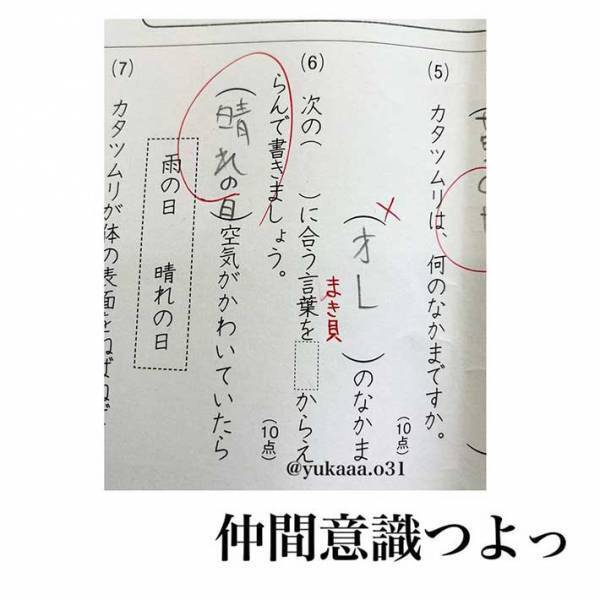 (5) カタツムリは、何のなかまですか。(10点)
(オレ)のなかま
まき貝
(6) 次の( )に合う言葉を からえ
らんで書きましょう。(10点)
(晴れの日)空気がかわいていたら
雨の日 晴れの日
(7) カタツムリが体の表面をねばねば
@yukaaa.o31
仲間意識つよっ